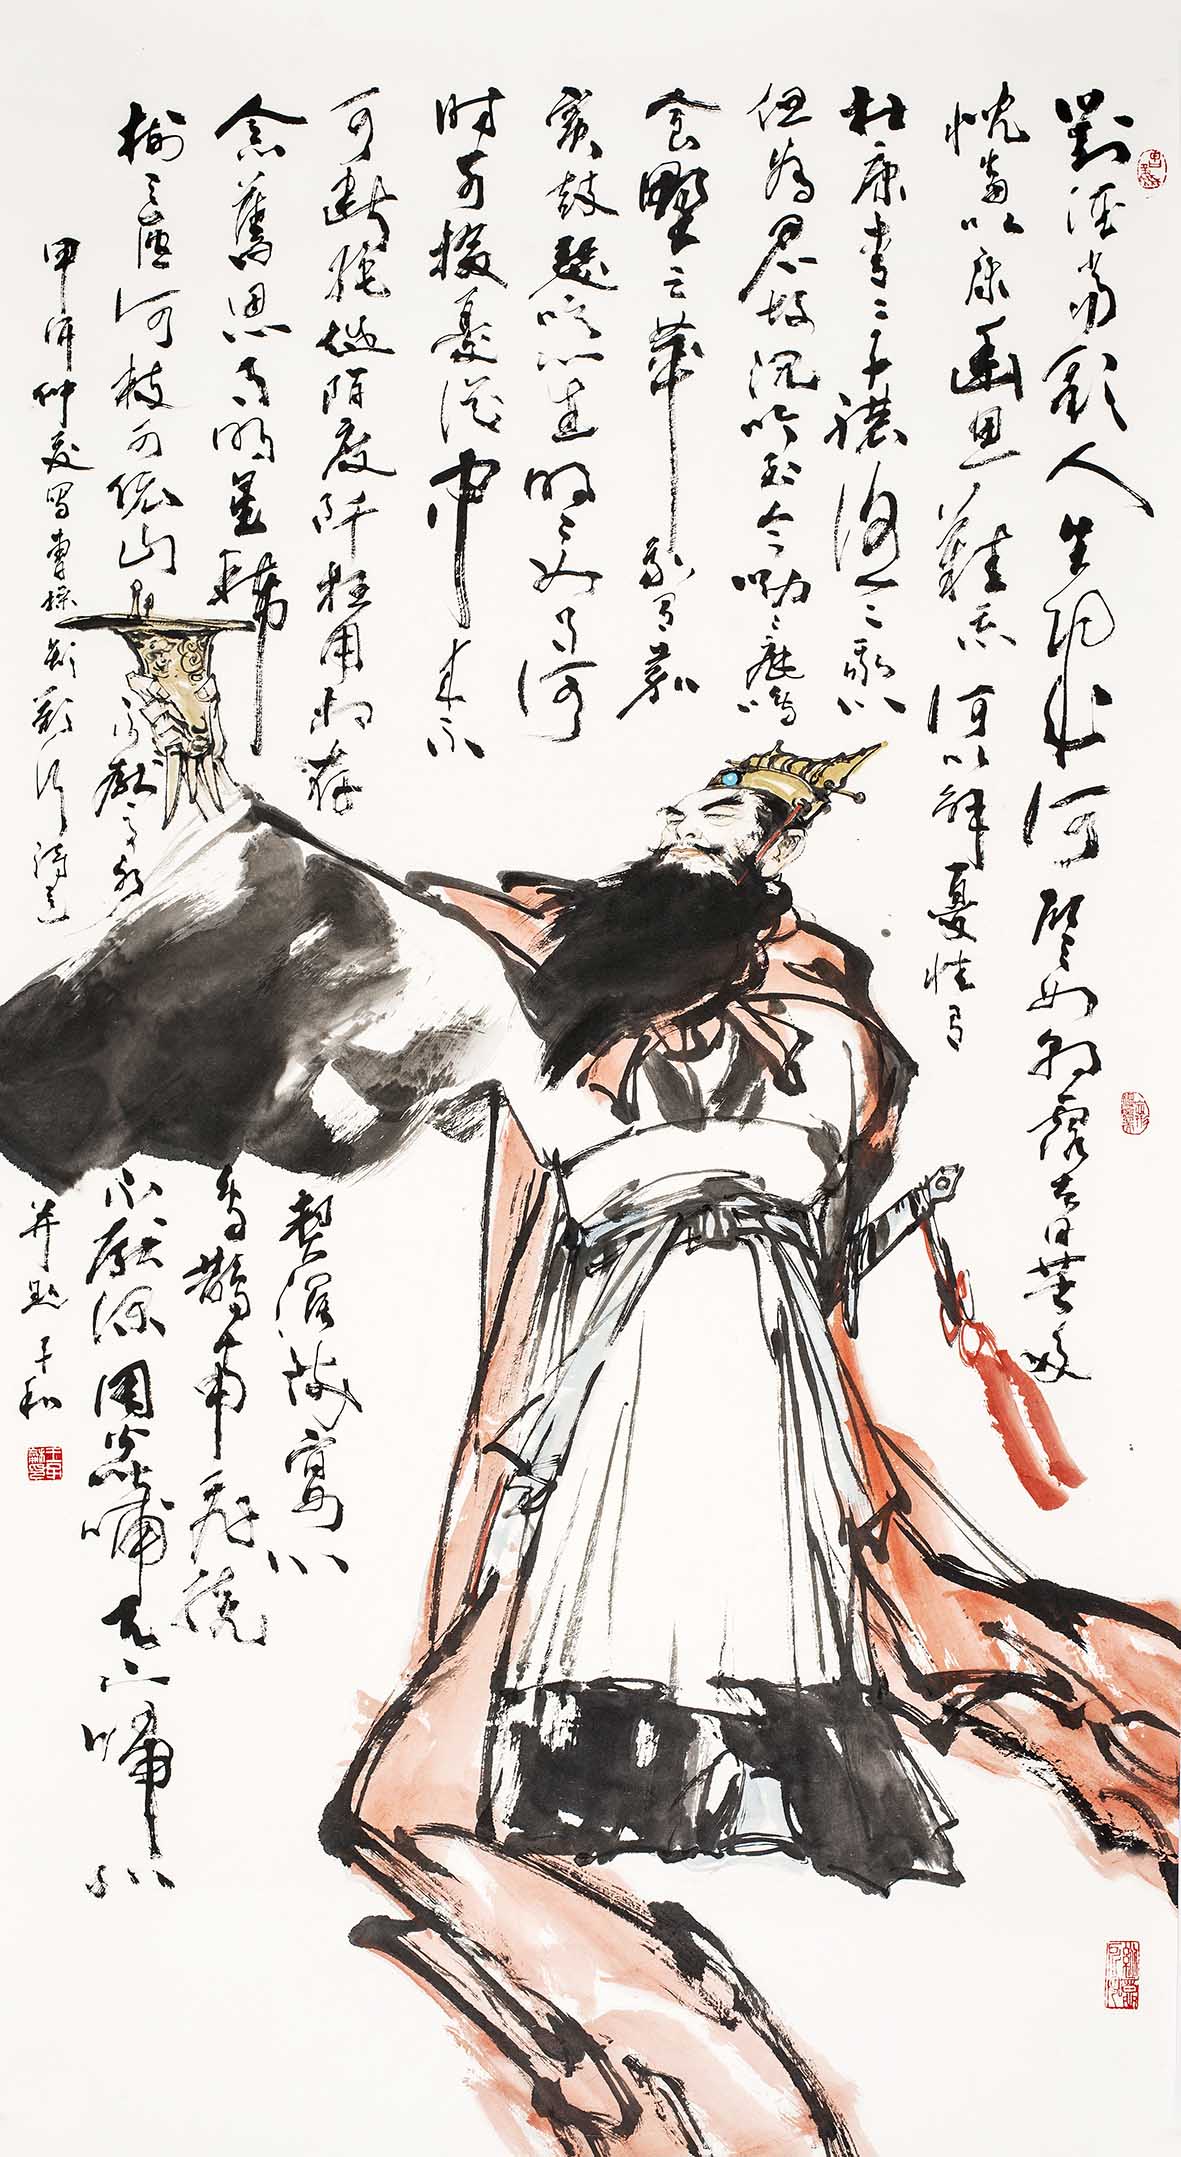 對酒當歌人生幾何譬如朝露去日苦多
慨當以慷幽思難忘何以解憂惟有
杜康青々子襟悠々我心
但為君故沉吟至今呦々鹿鳴
食野之苹我有嘉
賓鼓瑟吹笙明々如月何
時可掇憂從中來不
可斷絕越陌度阡枉用相存
契闊談宴心
念舊恩月明星稀
烏鵲南飛繞
樹三匝何枝可依山
不厭高水
不厭深周公吐哺天下歸心
甲午仲夏寫曹操短歌行詩意
并題子和